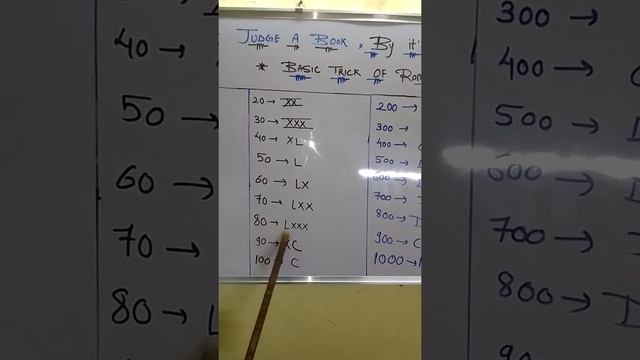 JUDGE A BOOK, BY it'
* BASIC TRICK OF ROM
20→ XX
30→ XXX
40→ XL
50→ L
60→ LX
70→ LXX
80→ LXXX
90→ XC
100→ C
200→
300→
400→ C
500→ D
600→ D
700→
800→ D
900→ C
1000→
40→
50→
60→
70→
80→ L
300→
400→
500→
600→
700→
800→